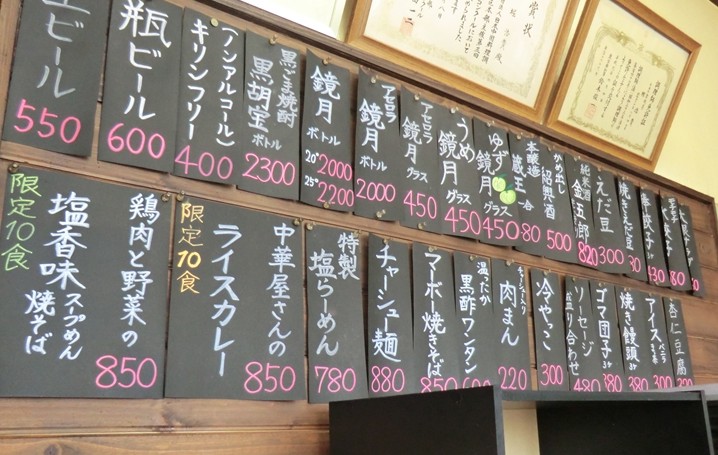 生ビール
550
瓶ビール
600
(ノンアルコール)
キリンフリー
400
黒ごま焼酎
黒胡宝
ボトル
2300
鏡月
ボトル
20° 2000
25° 2200
アセロラ
鏡月
ボトル
2000
アセロラ
鏡月
グラス
450
うめ
鏡月
グラス
450
ゆず
鏡月
グラス
450
本醸造
蔵王
一合
かめ出し
紹興酒
500
純米酒
金五郎
820
えだ豆
300
焼きえだ豆
賞状
限定10食
鶏肉と野菜の
塩香味スープめん
焼そば
850
限定10食
中華屋さんの
ライスカレー
850
特製
塩らーめん
780
チャーシュー麺
880
マーボー焼きそば
850
温ったか
黒酢ワンタン
チャーシュー入り
肉まん
220
冷やっこ
300
ソーセージ
盛り合わせ
480
ゴマ団子
380
焼き饅頭
380
アイス
バニラ
300
杏仁豆腐